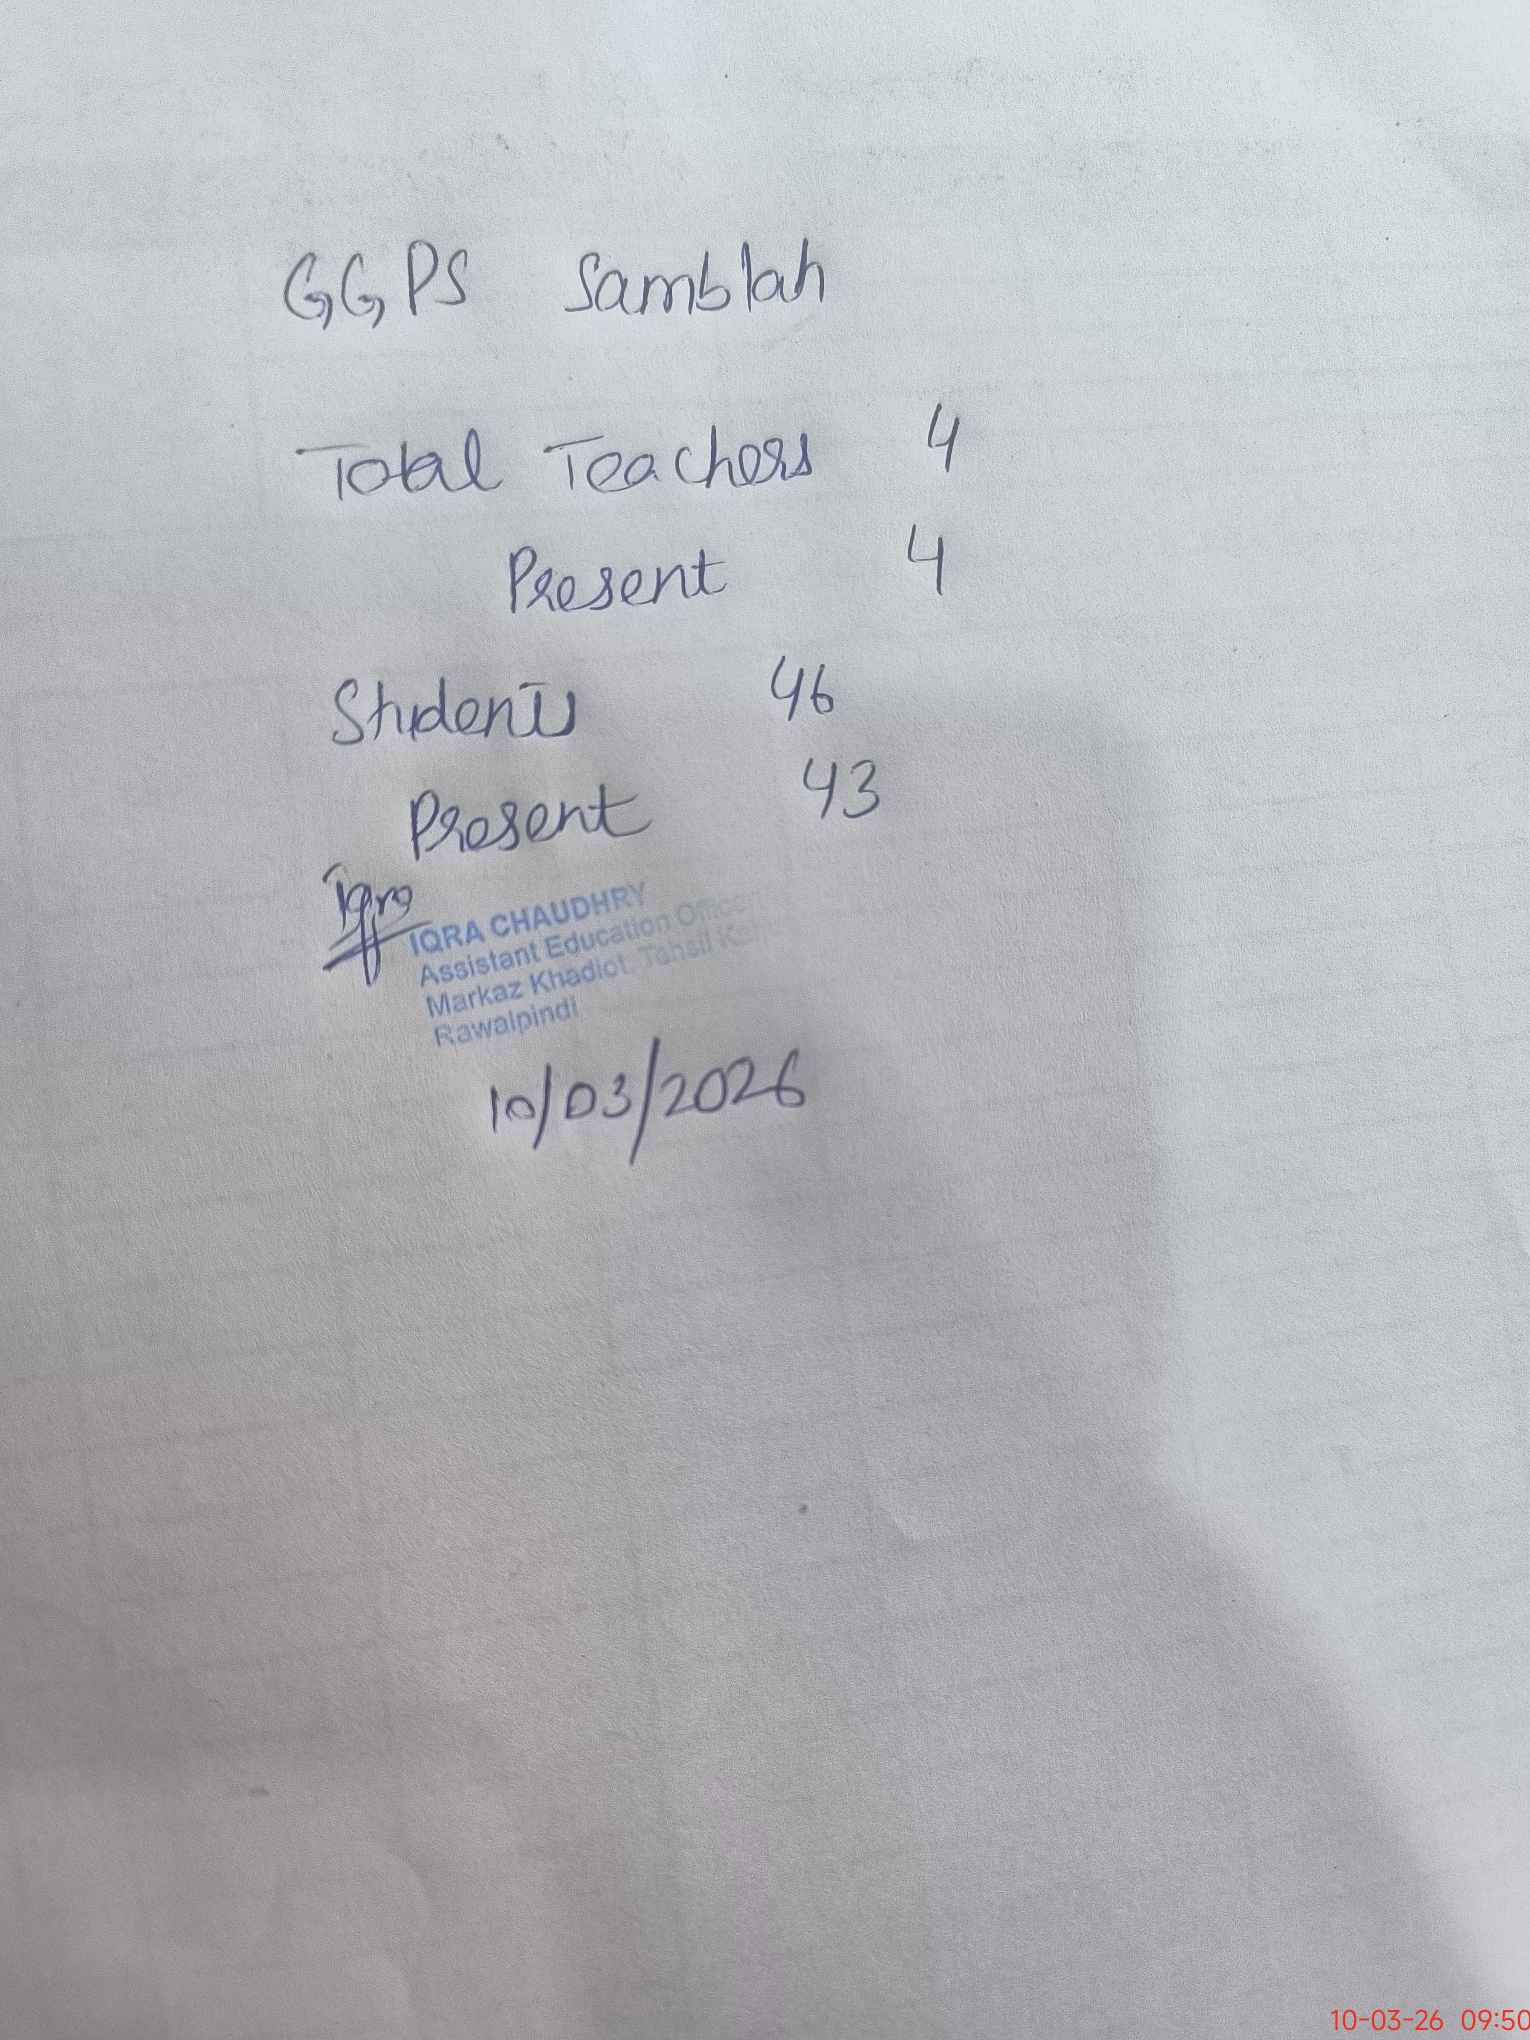 GGPS Samblah
Total Teachers 4
Present 4
Students 46
Present 43
Iqra
IQRA CHAUDHRY
Assistant Education Officer
Markaz Khadiot, Tahsil
Rawalpindi
10/03/2026
10-03-26 09:50